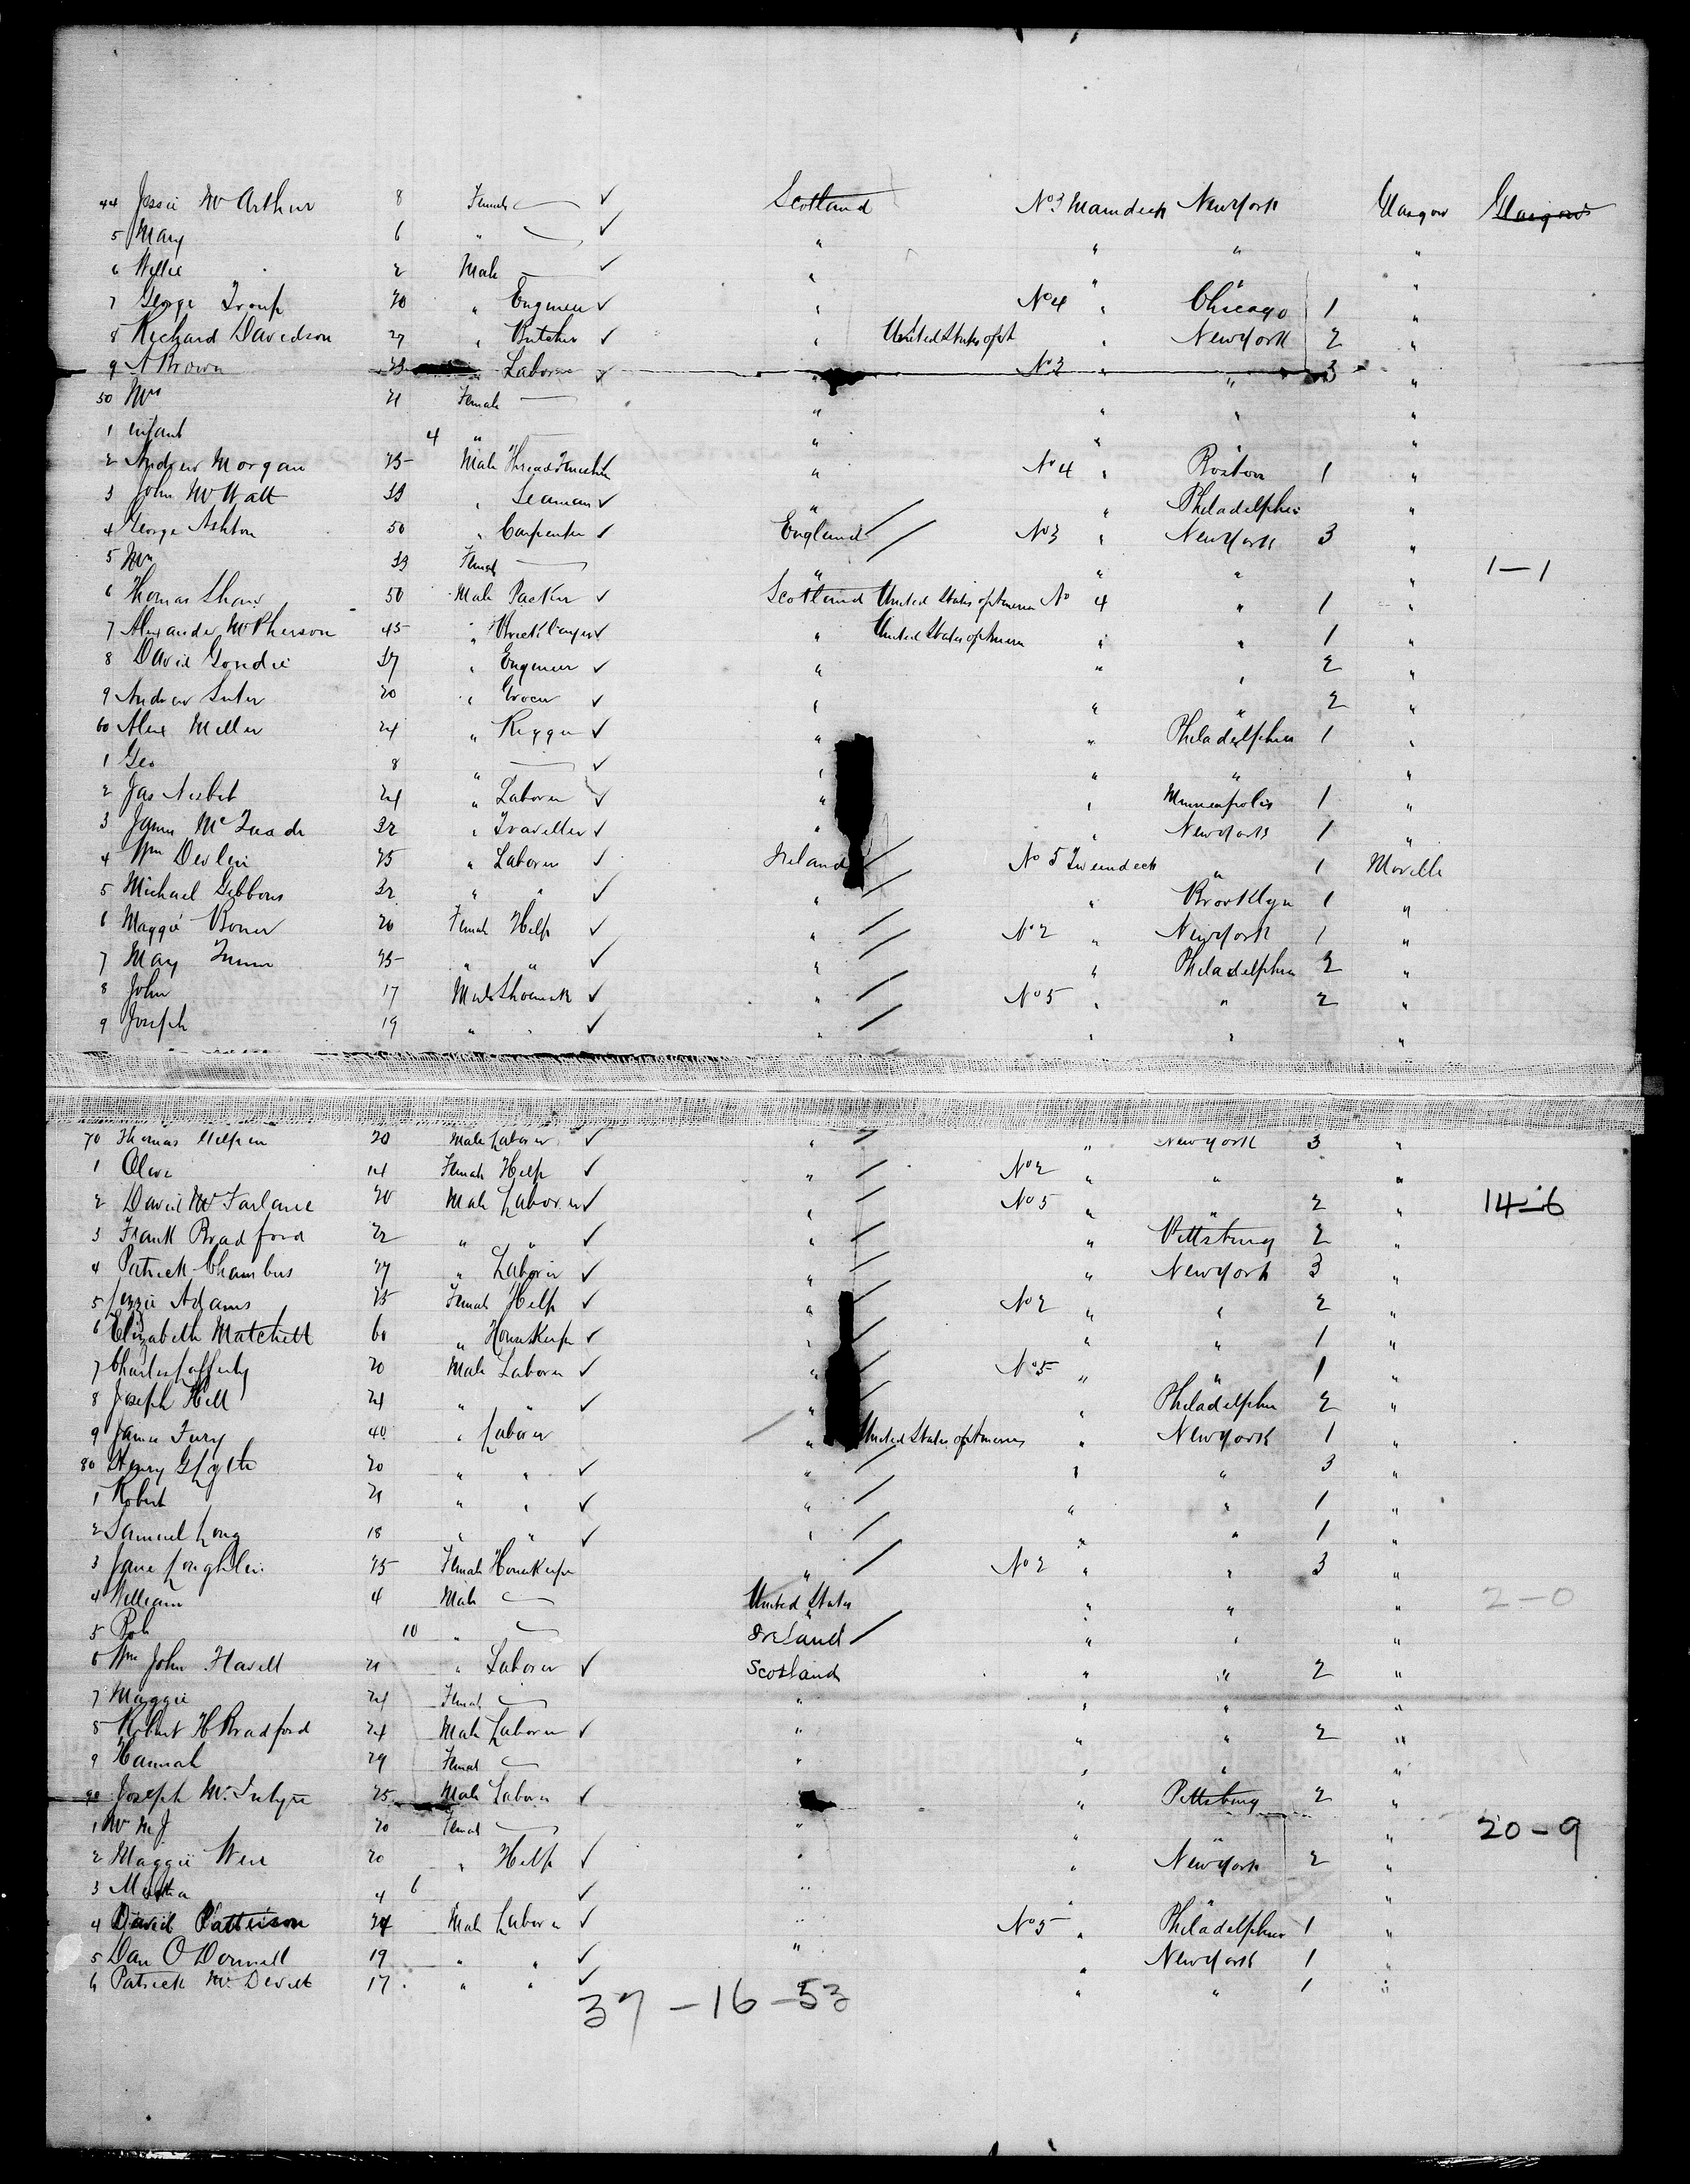 44 Jessie McArthur 8 Female ✓ Scotland No 3 Maindeck New York Glasgow Glasgow
5 Mary 6 " ✓ " " " "
6 Willie 2 Male ✓ " " " "
7 George Troup 20 " Engineer ✓ " No 4 " Chicago 1 "
8 Richard Davidson 27 " Butcher ✓ " United States of A " New York 2 "
9 A Brown 23 " Laborer ✓ " No 3 " " 3 "
50 Mrs 21 Female " " " "
1 infant 4 " " " "
2 Andrew Morgan 25 Male Thread Finisher ✓ " No 4 " Boston 1 "
3 John McWatt 33 " Seaman ✓ " " Philadelphia "
4 George Ashton 50 " Carpenter ✓ England No 3 " New York 3 "
5 Mrs 33 Female " " " " 1-1
6 Thomas Shaw 50 Male Packer ✓ Scotland United States of America No 4 " 1 "
7 Alexander McPherson 45 " Bricklayer ✓ " United States of America " " 1 "
8 David Goudie 37 " Engineer ✓ " " " 2 "
9 Andrew Suter 20 " Grocer ✓ " " " 2 "
60 Alex Miller 24 " Rigger ✓ " " Philadelphia 1 "
1 Geo 8 " ✓ " " " "
2 Jas Nesbit 24 " Laborer ✓ " " Minneapolis 1 "
3 James 32 " Traveller ✓ " " New York 1 "
4 Wm Devlin 25 " Laborer ✓ Ireland No 5 Tweendeck " 1 Moville
5 Michael Gibbons 32 " " ✓ " " Brooklyn 1 "
6 Maggie Boner 20 Female Help ✓ " No 2 " New York 1 "
7 Mary 25 " " ✓ " " Philadelphia 2 "
8 John 17 Male Shoemak ✓ " No 5 " " 2 "
9 Joseph 19 " " ✓ " " " "
70 Thomas 20 Male Laborer ✓ " " New York 3 "
1 14 Female Help ✓ " No 2 " " "
2 David McFarlane 20 Male Laborer ✓ " No 5 " " 2 " 14-6
3 Frank Bradford 22 " " ✓ " " Pittsburg 2 "
4 Patrick Chambers 27 " Laborer ✓ " " New York 3 "
5 Lizzie Adams 25 Female Help ✓ " No 2 " " 2 "
6 Elizabeth Matchett 60 " HouseKeeper ✓ " " " 1 "
7 Charles Lafferty 20 Male Laborer ✓ " No 5 " " 1 "
8 Joseph Hill 24 " " ✓ " " Philadelphia 2 "
9 James Fury 40 " Laborer " United States of America " New York 1 "
80 Henry 20 " " ✓ " " " 3 "
1 Robert 21 " " ✓ " " " 1 "
2 Samuel Long 18 " " ✓ " " " 1 "
3 Jane Loughlin 25 Female HouseKeeper " No 2 " " 3 "
4 William 4 Male United States " " " 2-0
5 Rob 10 " Ireland " " "
6 Wm John Flavell 21 " Laborer ✓ Scotland " " 2 "
7 Maggie 24 Female " " " "
8 Robert H Bradford 24 Male Laborer ✓ " " " 2 "
9 Hannah 29 Female " " " "
90 Joseph McIntyre 25 Male Laborer ✓ " Pittsburg 2 "
1 Mrs M J 20 Female " " " " 20-9
2 Maggie Weir 20 " Help ✓ " " New York 2 "
3 Martha 4 6 ✓ " " " "
4 David Patterson 24 Male Laborer ✓ " No 5 " Philadelphia 1 "
5 Dan O Donnell 19 " " ✓ " " New York 1 "
6 Patrick McDevitt 17 " " ✓ " " " 1 "
37-16-53